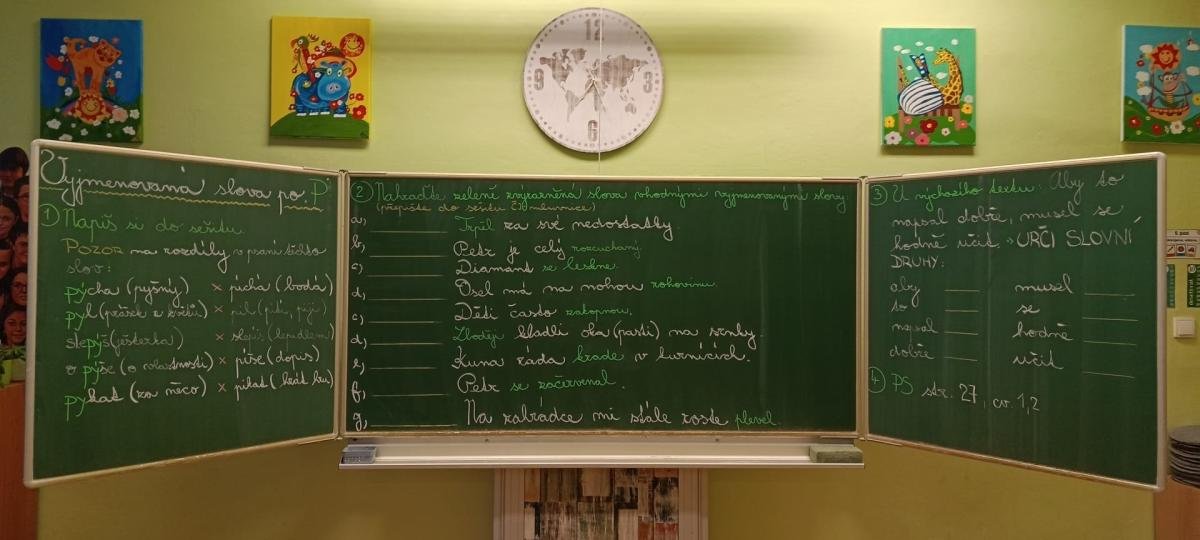 12
9
3
6
Vyjmenovaná slova po P
① Napiš si do sešitu.
POZOR na rozdíly v psaní těchto
slov:
pýcha (pyšný) × píchá (bodá)
pyl (prášek z květů) × pil (pít, piji)
slepýš (ještěrka) × slepíš (lepidlem)
o pýše (o vlastnosti) × píše (dopis)
pykat (za něco) × pikat (hrát hru)
② Nahraďte zeleně zvýrazněná slova vhodnými vyjmenovanými slovy:
(přepište do sešitu ČJ mluvnice)
a, Trpěl za své nedostatky
b, Petr je celý rozcuchaný.
c, Diamant se leskne.
d, Osel má na nohou rohovinu.
c, Děti často zakopnou.
d, Zloději kladli oka (pasti) na srnky.
e, Kuna ráda krade v kurnících.
f, Petr se začervenal.
g, Na zahrádce mi stále roste plevel
③ U výchozího textu: Aby to
napsal dobře, musel se
hodně učit. → URČI SLOVNÍ
DRUHY:
aby musel
to se
napsal hodně
dobře učit
④ PS str. 27, cv. 1,2